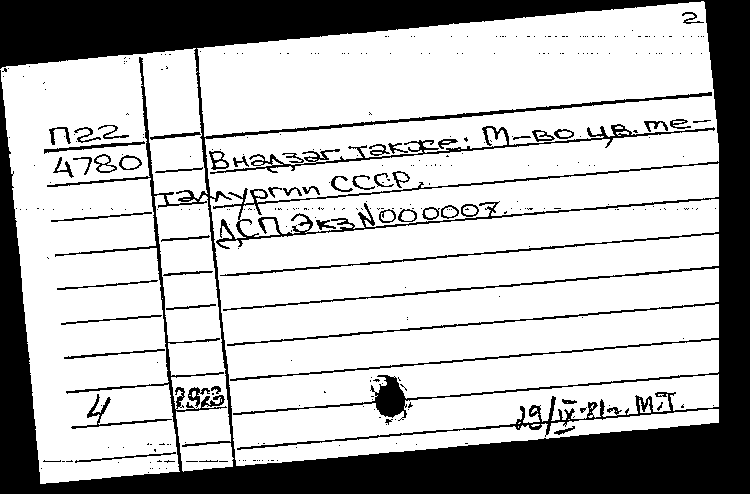 2
П22
4780
В надзаг. также: М-во цв. ме-
таллургии СССР.
ДСП. Экз N000007.
4 2923
29/IX-81г. М.Т.